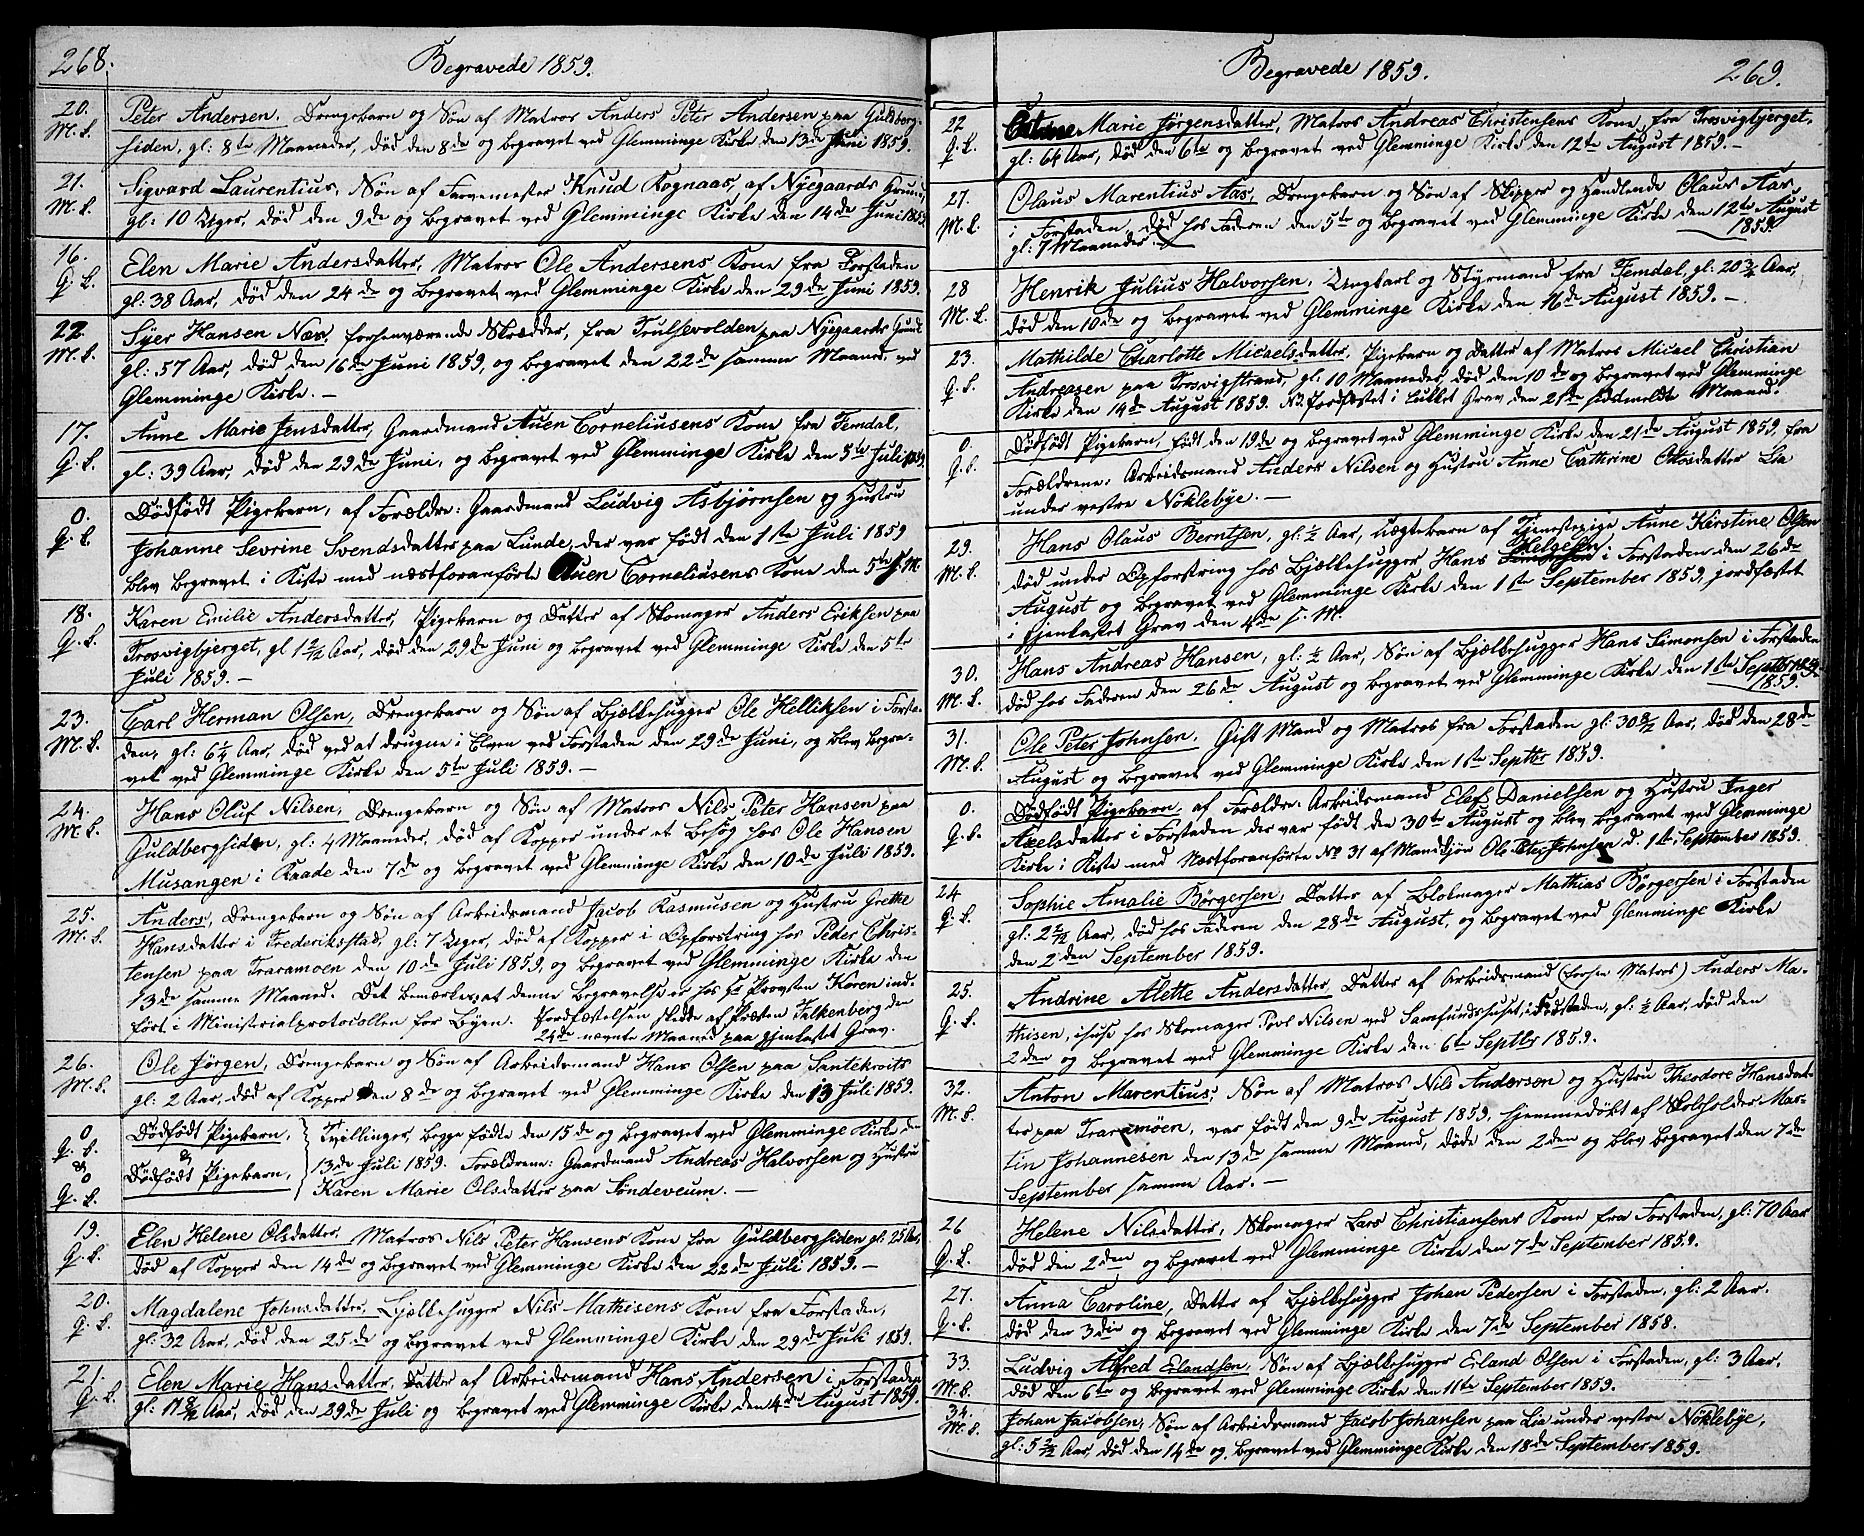 268.
Begravede 1859.
20. Peter Andersen, Drengebarn og Søn af Matros Anders Peter Andersen paa Guldberg-
M.L. siden, gl: 8te Maaneder, død den 8de og begravet ved Glemminge Kirke den 13de Juni 1859.
21. Sigvard Laurentius, Søn af Farvemester Knud Rognaas, af Nyegaards Grund,
M.L. gl: 10 Uger, død den 9de og begravet ved Glemminge Kirke den 14de Juni 1859.
16. Elen Marie Andersdatter, Matros Ole Andersens Kone fra Forstaden
Q.L. gl: 38 Aar, død den 24de og begravet ved Glemminge Kirke den 29de Juni 1859.
22. Syer Hansen Næs, forhenværende Skrædder, fra Trulsevolden paa Nyegaards Grund
M.L. gl: 57 Aar, død den 16de Juni 1859, og begravet den 22de samme Maaned ved
Glemminge Kirke. —
17. Anne Marie Jensdatter, Gaardmand Auen Corneliusens Kone fra Femdal,
Q.L. gl: 39 Aar, død den 29de Juni, og begravet ved Glemminge Kirke den 5te Juli 1859.
0. Dødfødt Pigebarn, af Forældre: Gaardmand Ludvig Asbjørnsen og Hustru
Q.L. Johanne Sevrine Svendsdatter paa Lunde, der var født den 1ste Juli 1859
blev begravet i Kiste med næstforanførte Auen Corneliusens Kone den 5te s. M.
18. Karen Emilie Andersdatter, Pigebarn og Datter af Skomager Anders Eriksen paa
Q.L. Trosvigbjerget, gl 1 2/12 Aar, død den 29de Juni og begravet ved Glemminge Kirke den 5te
Juli 1859. —
23. Carl Herman Olsen, Drengebarn og Søn af Bjælkehugger Ole Helliksen i Forsta-
M.L. den, gl: 6 1/4 Aar, død ved at drugne i Elven ved Forstaden den 29de Juni, og blev begra-
vet ved Glemminge Kirke den 5te Juli 1859. —
24. Hans Oluf Nilsen, Drengebarn og Søn af Matros Nils Peter Hansen paa
M.L. Guldbergsiden, gl: 4 Maaneder, død af Kopper under et Besøg hos Ole Hansen
Musangen i Raade den 7de og begravet ved Glemminge Kirke den 10de Juli 1859.
25. Anders, Drengebarn og Søn af Arbeidsmand Jacob Rasmusen og Hustru Grethe
M.L. Hansdatter i Frederiksstad, gl: 7 Uger, død af Kopper i Opfostring hos Peder Chris-
tensen paa Traramoen den 10de Juli 1859, og begravet ved Glemminge Kirke den
13de samme Maaned. Det bemærkes, at denne Begravelse er hos Hr Provsten Koren ind-
ført i Ministerialprotocollen for Byen. Jordfæstelsen skedde af Præsten Falkenberg den
24de nævnte Maaned paa gjenkastet Grav.
26. Ole Jørgen, Drengebarn og Søn af Arbeidsmand Hans Olsen paa Santekroits
M.L. gl: 2 Aar, død af Kopper den 8de og begravet ved Glemminge Kirke den 13 Juli 1859.
0 Dødfødt Pigebarn, Tvillinger, begge fødte den 15de og begravet ved Glemminge Kirke den
Q.L. & 13de Juli 1859. Forældrene: Gaardmand Andreas Halvorsen og Hustru
& 0 Q.L. Dødfødt Pigebarn, Karen Marie Olsdatter paa Søndeveum. —
19. Elen Helene Olsdatter, Matros Nils Peter Hansens Kone fra Guldbergsiden gl: 25 Aar,
Q.L. død af Kopper den 14de og begravet ved Glemminge Kirke den 22de Juli 1859. —
20. Magdalene Johnsdatter, Bjælkehugger Nils Mathisens Kone fra Forstaden,
Q.L. gl: 32 Aar, død den 25de og begravet ved Glemminge Kirke den 29de Juli 1859.
21. Elen Marie Hansdatter, Datter af Arbeidsmand Hans Andersen i Forstaden
Q.L. gl: 11 8/12 Aar, død den 29de Juli og begravet ved Glemminge Kirke den 4de August 1859.
Begravede 1859.
269.
22 Marie Jörgensdatter, Matros Andreas Christensens Kone, fra Trosvigbjerget,
Q.L. gl: 64 Aar, død den 6te og begravet ved Glemminge Kirke den 12te August 1859. —
27. Olaus Marentius Aas, Drengebarn og Søn af Skipper og Handlende Olaus Aas
M.L. i Forstaden, død hos Faderen den 5te og begravet ved Glemminge Kirke den 12te August
gl: 7 Maaneder. 1859.
28 Henrik Julius Halvorsen, Ungkarl og Styrmand fra Femdal, gl: 20 3/4 Aar,
M.L. død den 10de og begravet ved Glemminge Kirke den 16de August 1859. —
23. Mathilde Charlotte Micaelsdatter, Pigebarn og Datter af Matros Micael Christian
Q.L. Andreasen paa Trosvigstrand, gl: 10 Maaneder, død den 10de og begravet ved Glemminge
Kirke den 14de August 1859. NB. Jordfæstet i lukket Grav den 21de sidstmeldte Maaned.
0. Dødfødt Pigebarn, født den 19de og begravet ved Glemminge Kirke den 21de August 1859, fra
Q.L. Forældrene: Arbeidsmand Anders Nilsen og Hustru Anne Cathrine Ottosdatter Lia
under vestre Nöklebye. —
29. Hans Olaus Berntsen, gl: 1/2 Aar, Uægtebarn af Tjenestepige Anne Kirstine Olsen
M.L. død under Opfostring hos Bjælkehugger Hans Helgesen i Forstaden den 26de
August og begravet ved Glemminge Kirke den 1ste September 1859, jordfæstet
i gjenkastet Grav den 4de s. M.
30. Hans Andreas Hansen, gl: 1/2 Aar, Søn af Bjælkehugger Hans Simonsen i Forstaden
M.L. død hos Faderen den 26de August og begravet ved Glemminge Kirke den 1ste Septbr 1859.
1859.
31. Ole Peter Johnsen, Gift Mand og Matros fra Forstaden gl: 30 8/12 Aar, død den 28de
M.L. August og begravet ved Glemminge Kirke den 1ste Septbr 1859.
0. Dødfødt Pigebarn, af Forældre: Arbeidsmand Elef Danielsen og Hustru Inger
Q.L. Axelsdatter i Forstaden der var født den 30te August og blev begravet ved Glemminge
Kirke i Kiste med Næstforanførte No 31 af Mandkjøn Ole Peter Johnsen d. 1ste September 1859.
24 Sophie Amalie Börgersen, Datter af Blokmager Mathias Börgersen i Forstaden
Q.L. gl: 2 2/12 Aar, død hos Faderen den 28de August, og begravet ved Glemminge Kirke
den 2den September 1859.
25. Andrine Alette Andersdatter, Datter af Arbeidsmand (forhen Matros) Anders Ma-
Q.L. thisen, i huse hos Skomager Povl Nilsen ved Samfundshuset i Forstaden, gl: 1/2 Aar, død den
2den og begravet ved Glemminge Kirke den 6te Septbr 1859.
32. Anton Marentius, Søn af Matros Nils Anderson og Hustru Theodore Hansdat-
M.L. ter paa Traramöen, var født den 9de August 1859, hjemmedøbt af Skoleholder Mar-
tin Johannesen den 13de samme Maaned, døde den 2den og blev begravet den 7de
September samme Aar. —
26 Helene Nilsdatter, Skomager Lars Christiansens Kone fra Forstaden, gl: 70 Aar
Q.L. død den 2den og begravet ved Glemminge Kirke den 7de September 1859.
27. Anna Caroline, Datter af Bjælkehugger Johan Pedersen i Forstaden, gl: 2 Aar.
Q.L. død den 3die og begravet ved Glemminge Kirke den 7de September 1858.
33. Ludvig Alfred Erlandsen, Søn af Bjælkehugger Erland Olsen i Forstaden, gl: 3 Aar.
M.L. død den 6te og begravet ved Glemminge Kirke den 11te September 1859.
34. Johan Jacobsen, Søn af Arbeidsmand Jacob Johansen paa Lia under vestre Nöklebye,
M.L. gl: 5 2/12 Aar, død den 14de og begravet ved Glemminge Kirke den 18de September 1859.